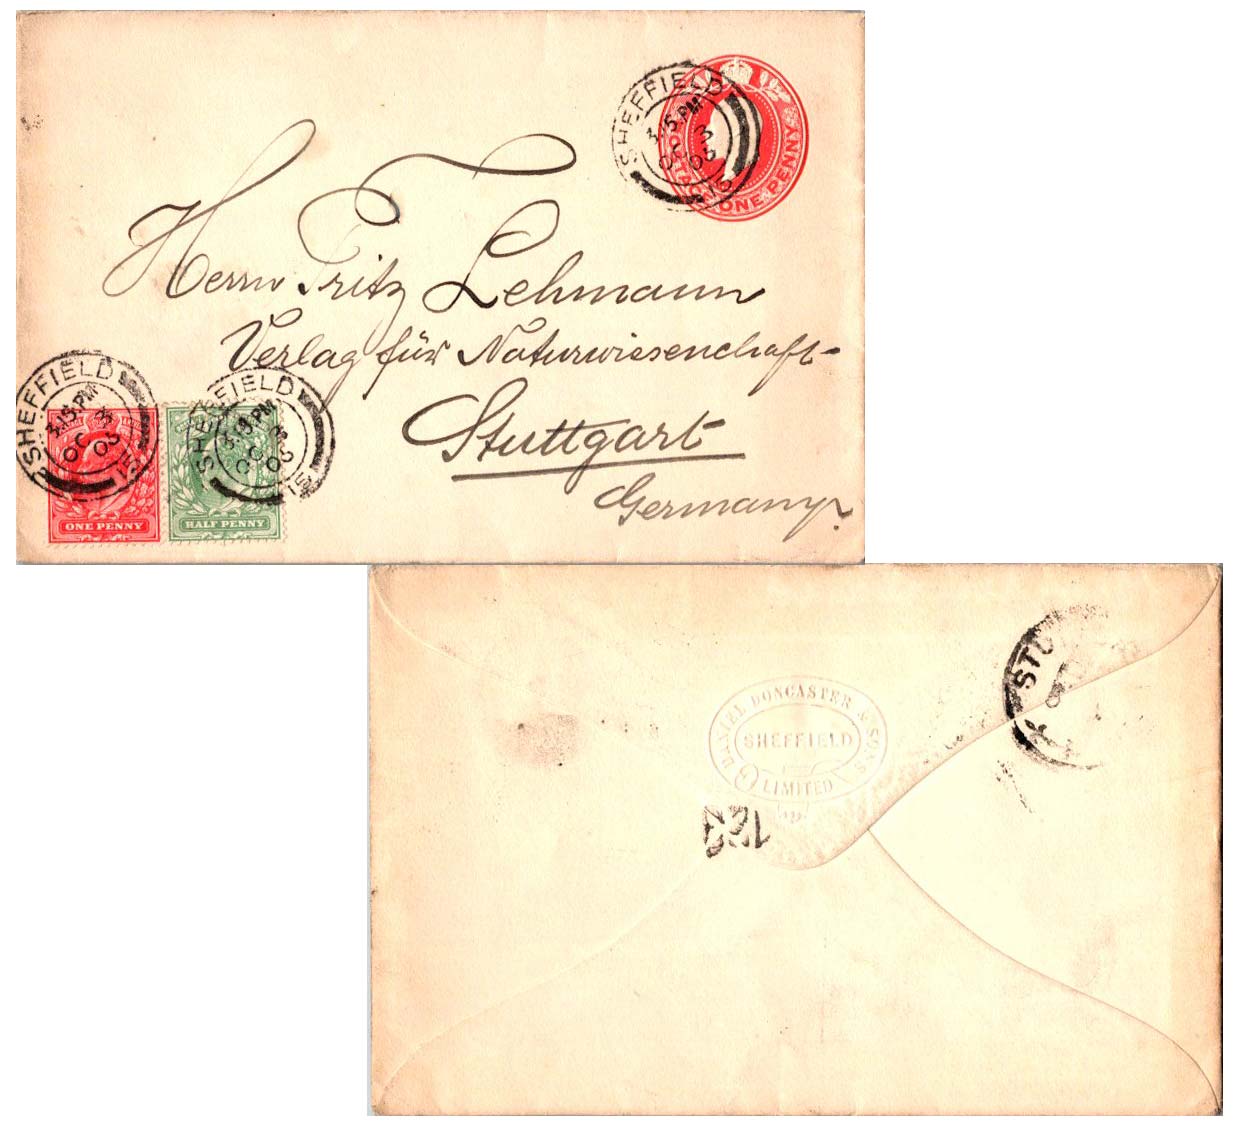 SHEFFIELD
3.15.PM
OC 3
03
15
POSTAGE ONE PENNY
Herrn Fritz Lehmann
Verlag für Naturwissenschaft-
Stuttgart
Germany.
SHEFFIELD
3.15.PM
OC 3
03
15
ONE PENNY
SHEFFIELD
3.15.PM
OC 3
03
15
HALF PENNY
DANIEL DONCASTER & SONS
SHEFFIELD
LIMITED
STU